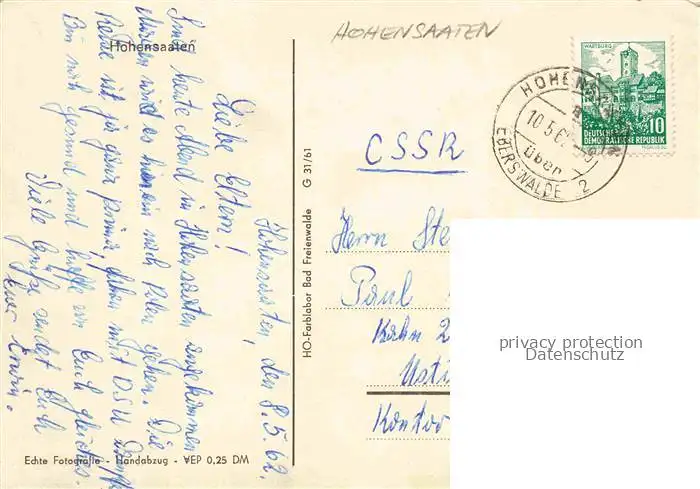 Hohensaaten
HOHENSAATEN
Hohensaaten, den 8.5.62.
Liebe Eltern!
Sind heute Abend in Hohensaaten angekommen
Morgen wird es hinein nach Polen gehen. Die
Reise ist ja ganz prima, gehen mit DSU Dampfer
Bin noch gesund und hoffe von Euch gleiches.
Viele Grüße sendet Euch
Euer Erwin.
G 31/61
HO-Farblabor Bad Freienwalde
Echte Fotografie - Handabzug - VEP 0,25 DM
WARTBURG
DEUTSCHE 10
DEMOKRATISCHE REPUBLIK
HOHENS
10.5.6
über
EBERSWALDE 2
CSSR
Herrn Ste
Paul
Kahn 2
Usti
Kontor
privacy protection
Datenschutz